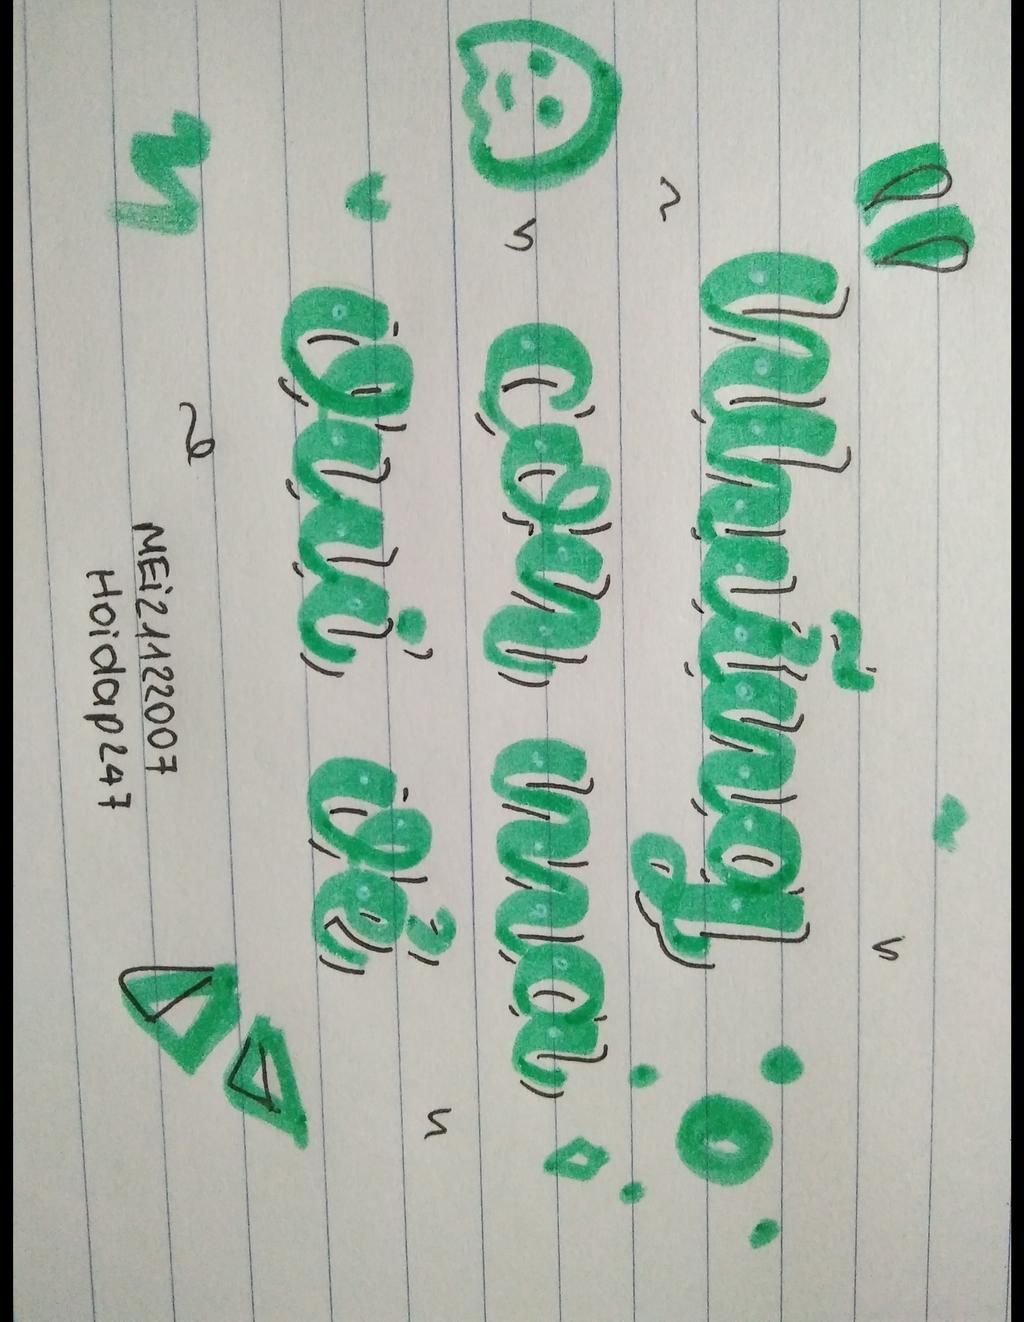 Những
con ma
vui vẻ
MEi21122007
Hoidap247